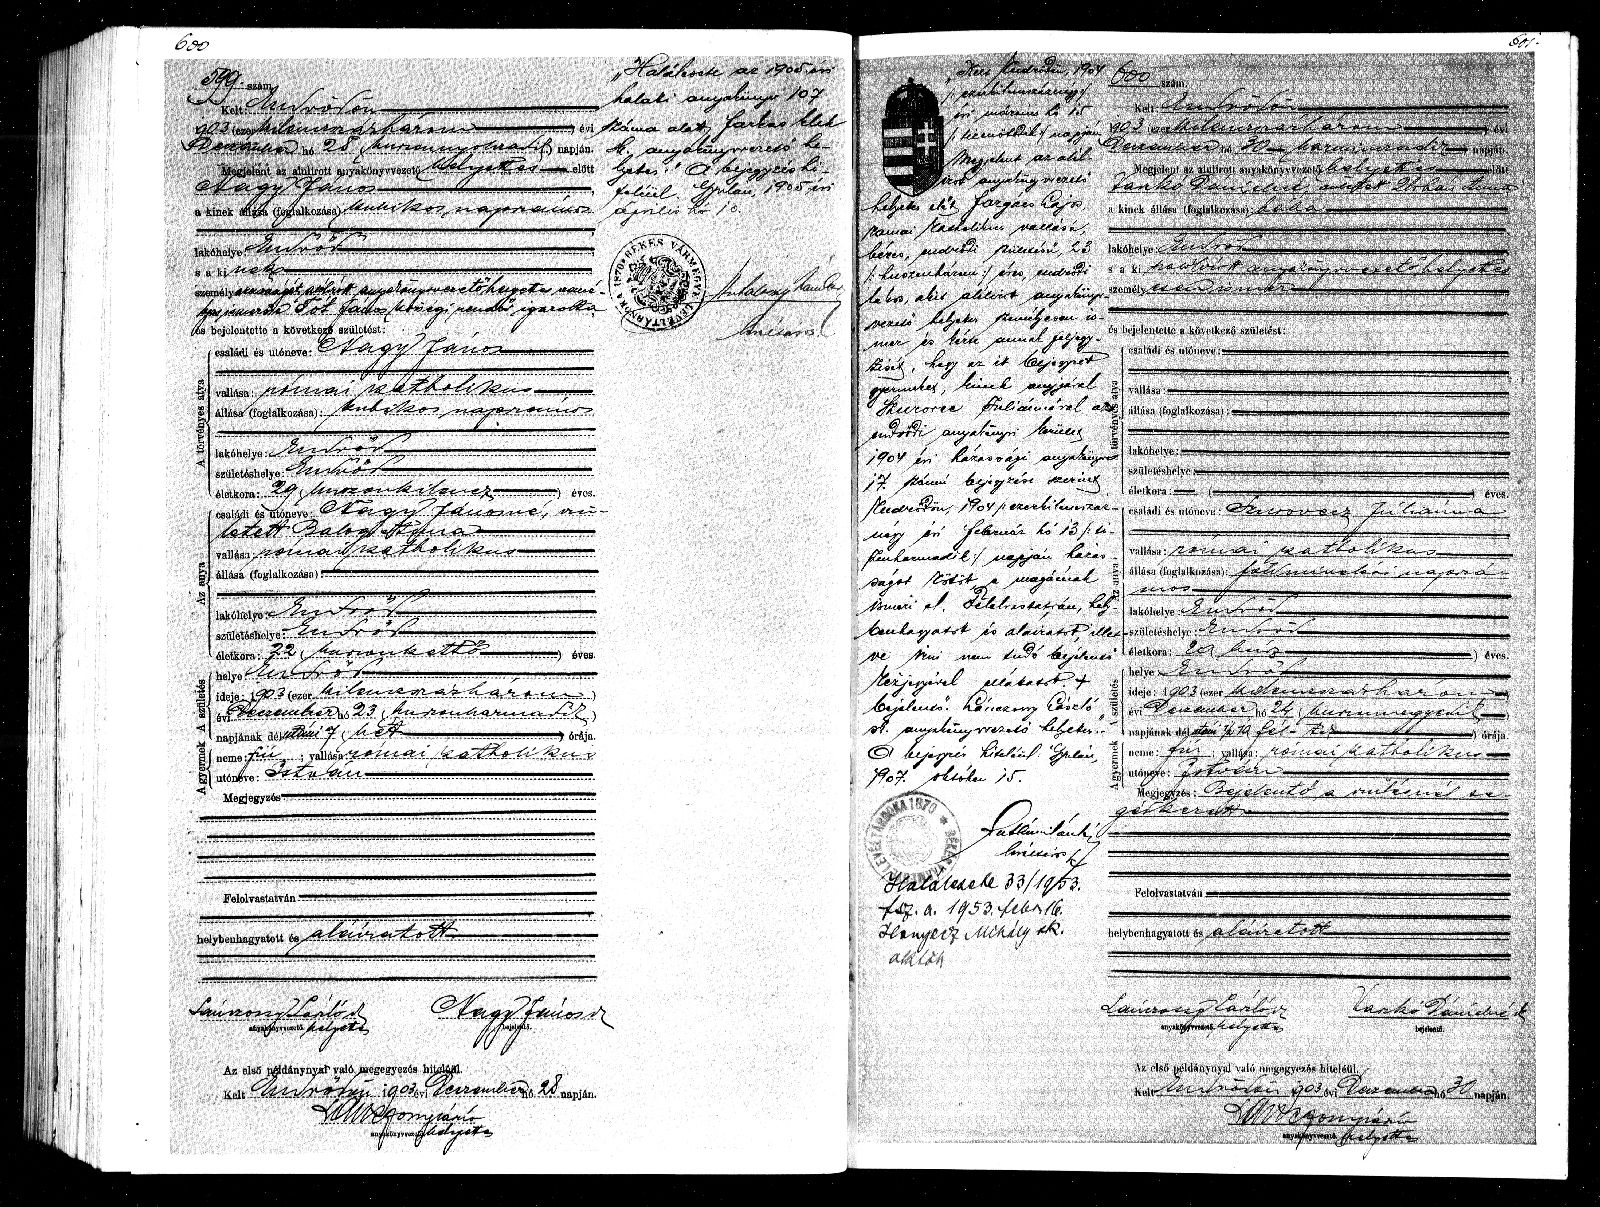 600
599 szám.
Kelt Endrődön
1903 (ezer kilenczszázhárom) évi
Deczember hó 28 (huszonnyolczadik) napján.
Megjelent az alulirott anyakönyvvezető helyettes előtt
Nagy János
a kinek állása (foglalkozása) kubikos napszámos
lakóhelye Endrőd
s a ki
személyazonosságát alólirt anyakönyvvezetőhelyettes
Tót János községi rendőr igazolta
és bejelentette a következő születést:
A törvényes atya
családi és utóneve: Nagy János
vallása: római katholikus
állása (foglalkozása): kubikos napszámos
lakóhelye: Endrőd
születéshelye: Endrőd
életkora: 29 (huszonkilencz) éves.
Az anya
családi és utóneve: Nagy Jánosné, szü-
letett Balog Anna
vallása: római katholikus
állása (foglalkozása):
lakóhelye: Endrőd
születéshelye: Endrőd
életkora: 22 (huszonkettő) éves.
A gyermek A születés
helye: Endrőd
ideje: 1903 (ezer kilenczszázhárom)
évi Deczember hó 23 (huszonharmadik)
napjának délutáni 7 (hét) órája.
neme: fiú; vallása: római katholikus
utóneve: István
Megjegyzés:
Felolvastatván
helybenhagyatott és aláiratott
Nagy János
anyakönyvvezető helyettes
bejelentő.
Az első példánynyal való megegyezés hiteléül.
Kelt Endrődön 1903 évi Deczember hó 28 napján.
anyakönyvvezető helyettes
„Halálesete az 1905. évi
halálu anyakönyv 107
száma alatt, Farkas Elek
sk. anyakönyvvezető he-
lyettes." A bejegyzés hi-
teléül. Gyulán, 1905 évi
április hó 10.
BÉKÉS VÁRMEGYE LEVÉLTÁRNOKA 1870
601.
Kelt Endrődön, 1904
/: ezerkilenczszáznégy :/
évi márczius hó 15
/: tizenötödik :/ napján
Megjelent az alul-
irott anyakönyvvezető
helyettes előtt Faragó Lajos
római katholikus vallású,
béres, endrődi születésű, 23
/: huszonhárom :/ éves, endrődi
lakos, akit alólirt anyakönyv-
vezető helyettes személyesen is-
mer és kérte annak feljegy-
zését, hogy az itt bejegyzett
gyermeket, kinek anyjával
Juliannával az
endrődi anyakönyvi kerület
1904 évi házassági anyakönyve
17. számú bejegyzése szerint
Endrődön, 1904 /: ezerkilenczszáz-
négy évi február hó 13 /: ti-
zenharmadik :/ napján házas-
ságot kötött, a magáénak
ismeri el. Felolvastatván, hely-
benhagyatott és aláiratott, illet-
ve irni nem tudó bejelentő
kézjegyével elláttatott. +
bejelentő. László
sk. anyakönyvvezető helyettes."
A bejegyzés hiteléül Gyulán,
1907. október 15.
LEVÉLTÁRNOKA 1870 BÉKÉS VÁRMEGYE
Halálesete 33/1953.
fsz. a. 1953. febr 16.
Hanyecz Mihály sk.
600 szám.
Kelt Endrődön
1903 (ezer kilenczszázhárom) évi
Deczember hó 30 (harminczadik) napján.
Megjelent az alulirott anyakönyvvezető helyettes előtt
a kinek állása (foglalkozása) bába
lakóhelye Endrőd
s a ki alólirt anyakönyvvezetőhelyettes
személyesen ismer
és bejelentette a következő születést:
A törvényes atya
családi és utóneve:
vallása:
állása (foglalkozása):
lakóhelye:
születéshelye:
életkora: ( ) éves.
Az anya
családi és utóneve: Juliánna
vallása: római katholikus
állása (foglalkozása): földmívelési napszá-
mos
lakóhelye: Endrőd
születéshelye: Endrőd
életkora: 20 (húsz) éves.
A gyermek A születés
helye: Endrőd
ideje: 1903 (ezer kilenczszázhárom)
évi Deczember hó 24 (huszonnegyedik)
napjának délutáni ½ 10 (fél tíz) órája.
neme: fiú; vallása: római katholikus
utóneve: István
Megjegyzés: Bejelentő a szülésnél se-
gédkezett
Felolvastatván
helybenhagyatott és aláiratott
anyakönyvvezető helyettes
bejelentő.
Az első példánynyal való megegyezés hiteléül.
Kelt Endrődön 1903 évi Deczember hó 30 napján.
anyakönyvvezető helyettes